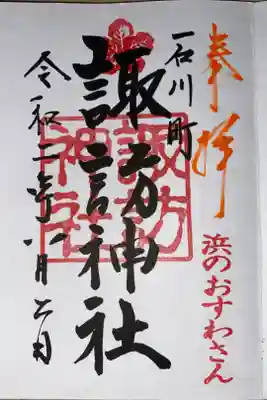 奉拝
浜のおすわさん
石川町
諏訪神社
諏訪神社
令和二年八月六日